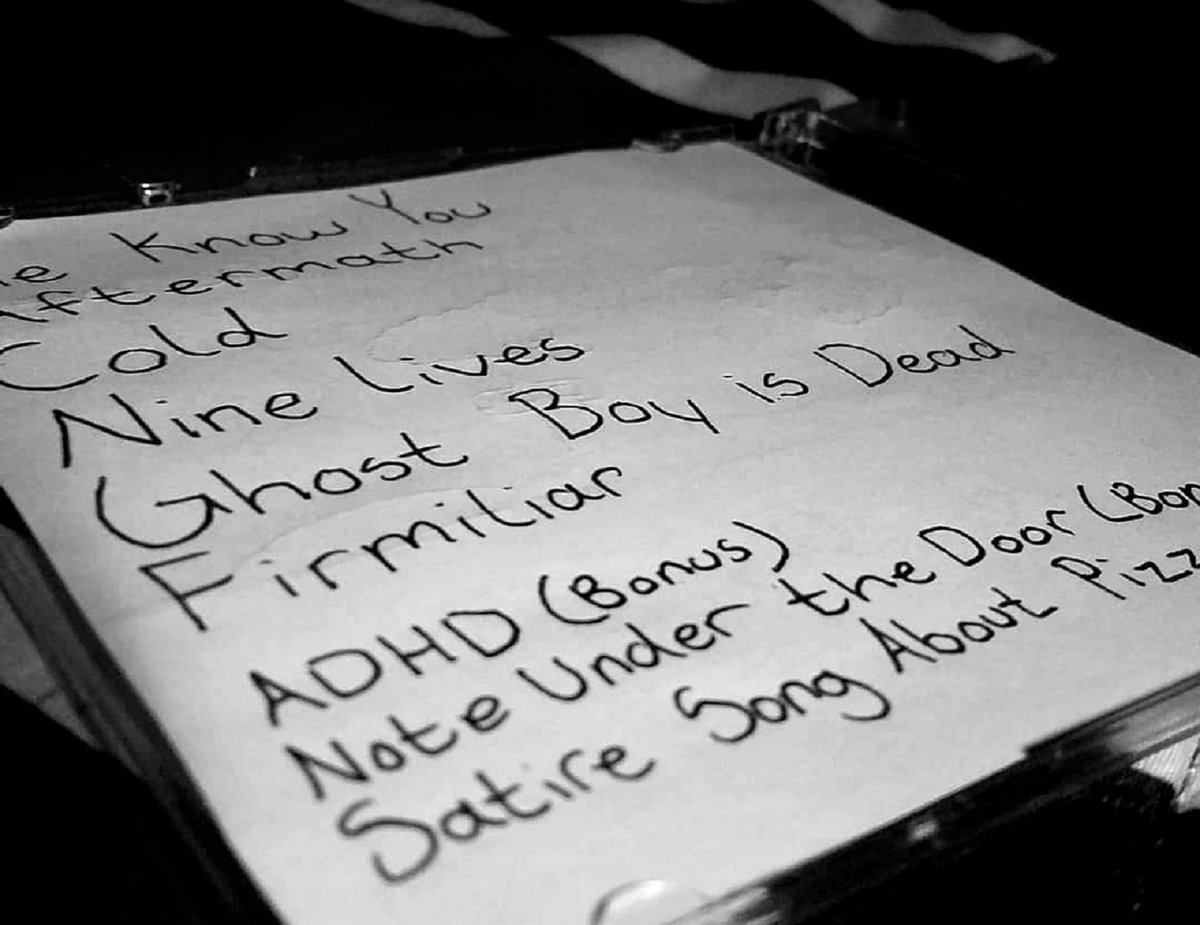 Know You
Aftermath
Cold
Nine Lives
Ghost Boy is Dead
Firmiliar
ADHD (Bonus)
Note Under the Door (Bon
Satire Song About Pizz